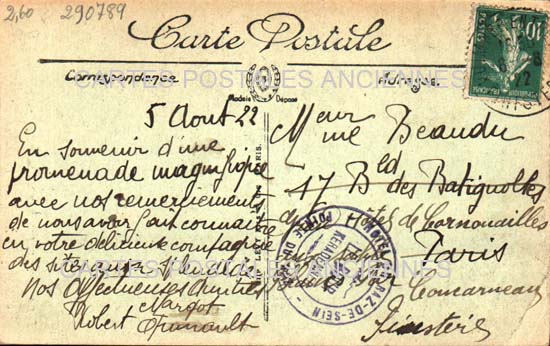 2,60 290789
Carte Postale
Correspondance
Adresse
CARTES POSTALES ANCIENNES
Modèle Déposé
10
5 Aout 22
En souvenir d'une
promenade magnifique
avec nos remerciements
de nous avoir fait connaitre
en votre délicieuse compagnie
des sites
Nos affectueuses amitiés
Margot
Robert
Meur
me Beaudu
17 Bed des Batignolles
Hôtel de Cornouailles
Paris
Concarneau
Finistère
POINTE DU RAZ-DE-SEIN
CARTES POSTALES ANCIENNES